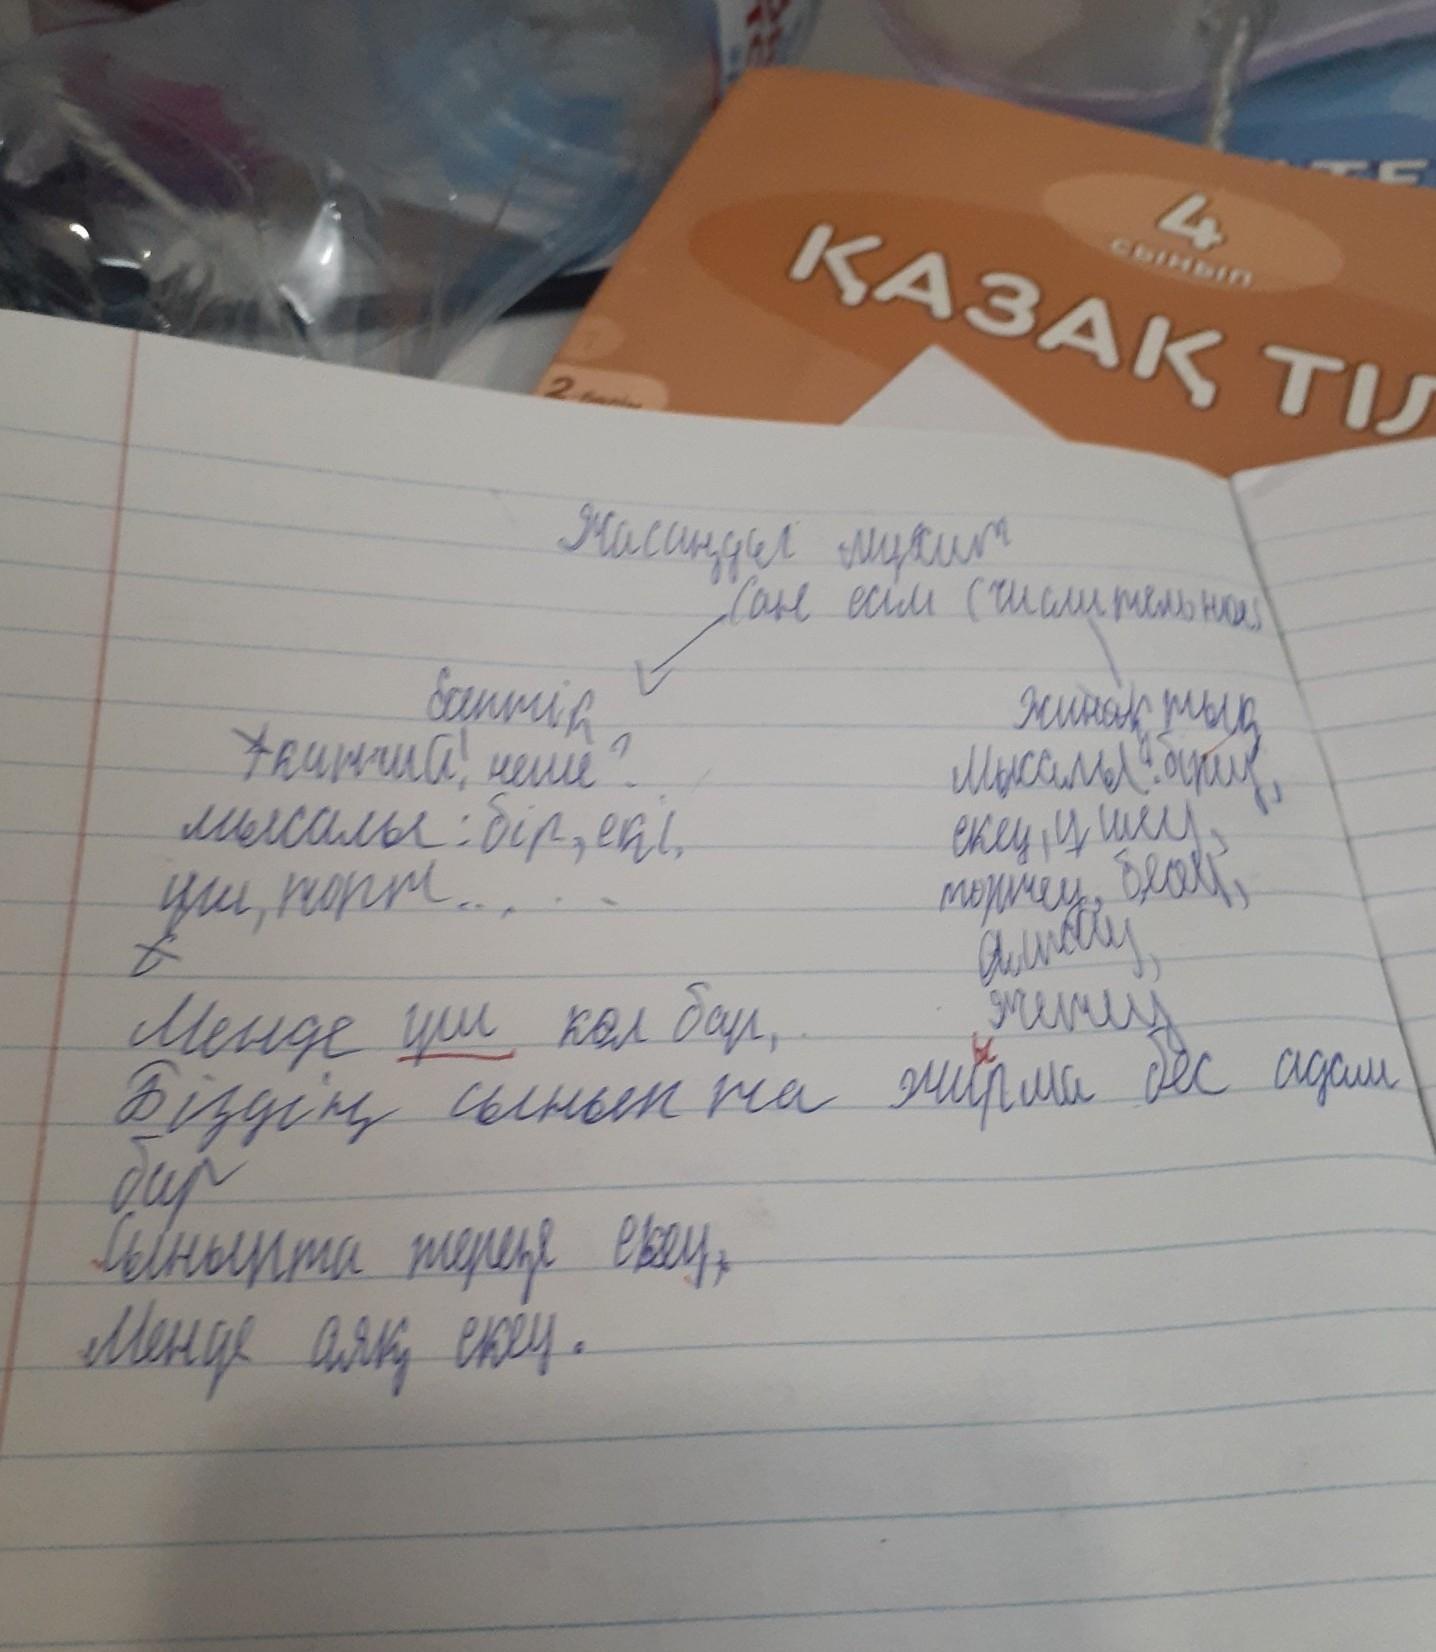 4
СЫНЫП
ҚАЗАҚ ТІЛ
2
Жасанды мұхит
Сан есім (числительная
Есептік
жинақтық
қанша? неше?
Мысалы: біреу,
мысалы: бір, екі,
екеу, үшеу,
үш, төрт.....
төртеу, бесеу,
алтау,
жетеу
Менде үш көл бар,
Біздің сыныпта жиырма бес адам
бар
Сыныпта терезе екеу,
Менде аяқ екеу.